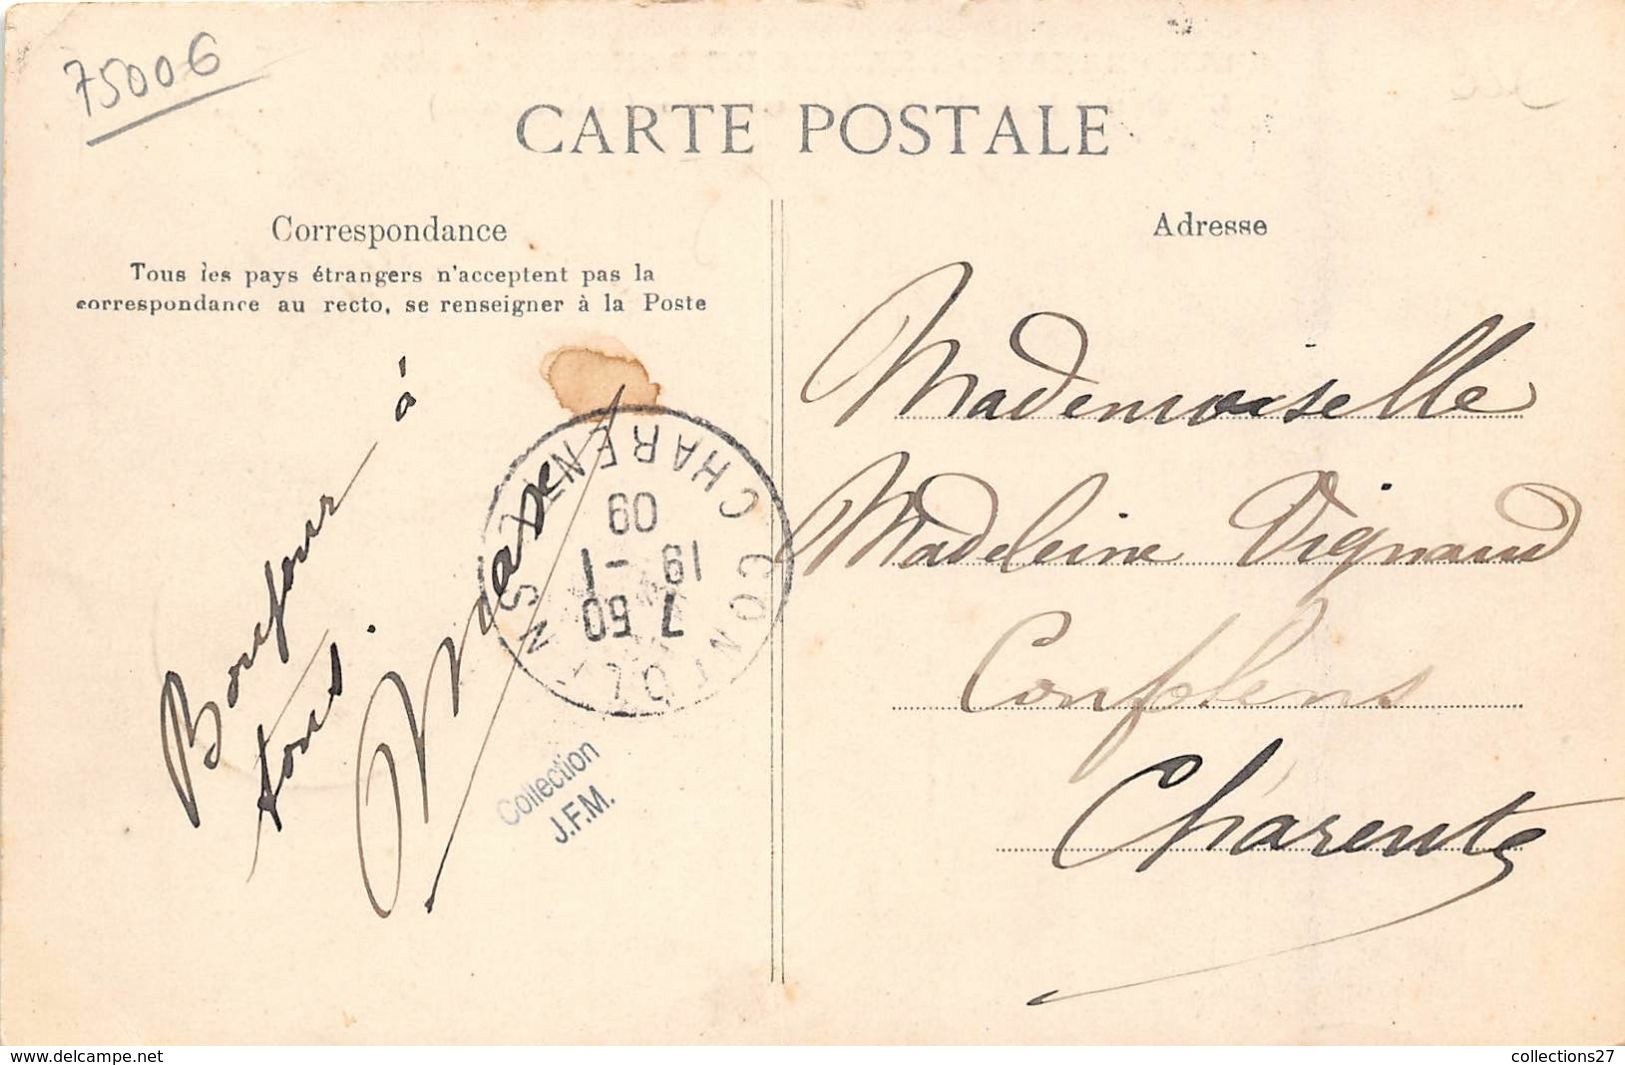 75006
CARTE POSTALE
Correspondance
Tous les pays étrangers n'acceptent pas la
correspondance au recto, se renseigner à la Poste
Bonjour à
tous.
Max
CONFOLENS CHARENTE
7 50
19 - 1
09
Collection
J.F.M.
Adresse
Mademoiselle
Madeleine Vignaud
Confolens
Charente
www.delcampe.net
collections27